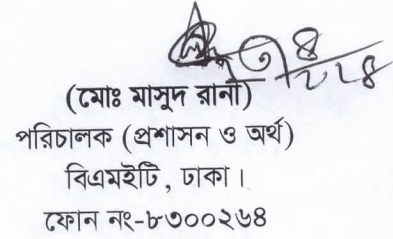 (মোঃ মাসুদ রানা)
পরিচালক (প্রশাসন ও অর্থ)
বিএমইটি, ঢাকা।
ফোন নং-৮৩০০২৬৪